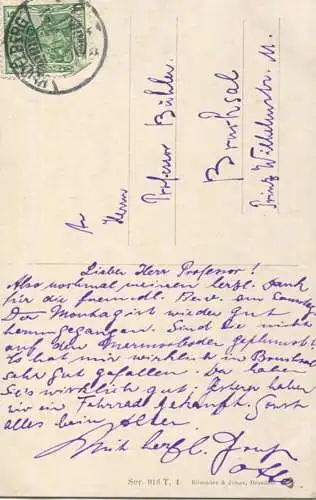 HEIDELBERG
An
Herrn
Professor Bühler
Bruchsal
Prinz Wilhelmstr. 11.
Lieber Herr Professor!
Also nochmal meinen herzl. Dank
für die freundl. Bew. am Samstag
Der Montag ist wieder gut
herumgegangen. Sind Sie nicht
auf den
Es hat mir wirklich in Bruchsal
sehr gut gefallen. Da haben
Sie's wirklich gut. Gestern haben
wir ein Fahrrad gekauft. Sonst
alles beim Alten.
Mit herzl. Gruß
Otto
Ser. 915 T. 4. Römmler & Jonas, Dresden